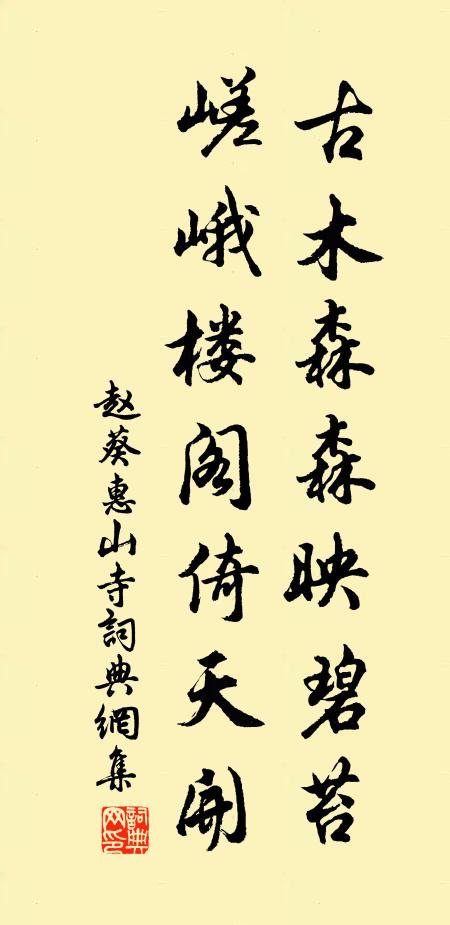 古木森森映碧苔
嵯峨楼阁倚天开
赵葵惠山寺詞典網集
詞典网印